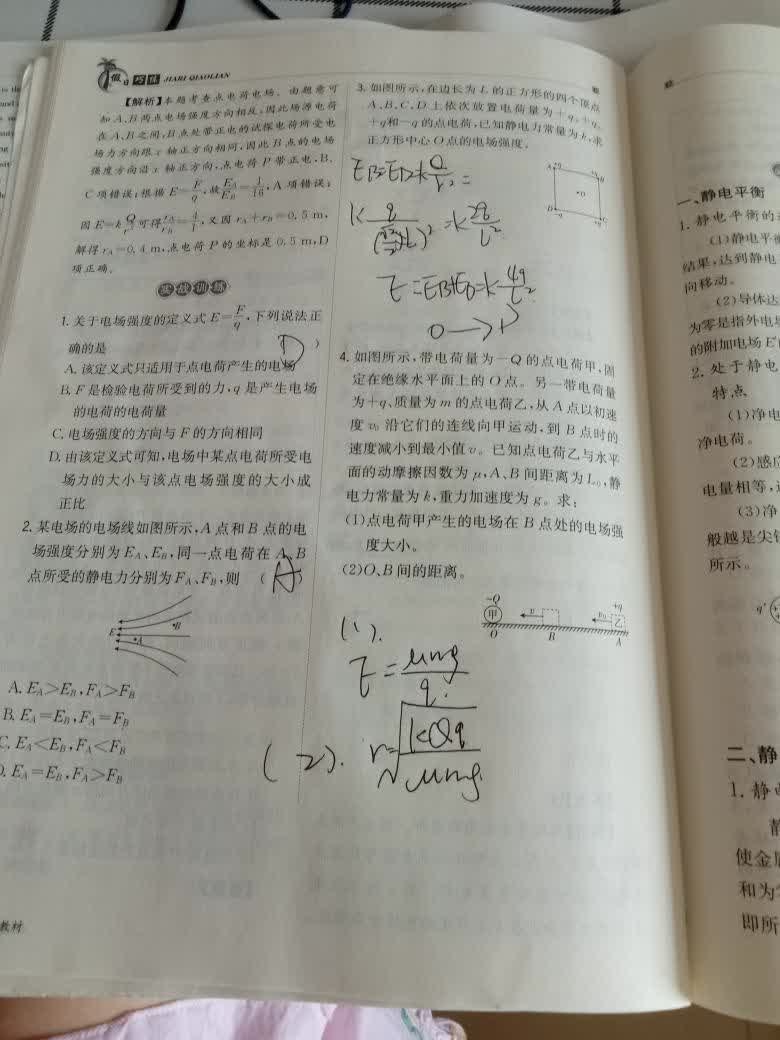 假日 巧练 JIARI QIAOLIAN
【解析】本题考查点电荷电场。由题意可
知A、B两点电场强度方向相反,因此场源电荷
在A、B之间,B点处带正电的试探电荷所受电
场力方向跟x轴正方向相同,因此B点的电场
强度方向沿x轴正方向,点电荷P带正电,B、
C项错误;根据E=F/q,故E_A/E_B=1/16,A项错误;
因E=kQ/r²可得r_A/r_B=4/1,又因r_A+r_B=0.5 m,
解得r_A=0.4 m,点电荷P的坐标是0.5 m,D
项正确。
实战训练
1.关于电场强度的定义式E=F/q,下列说法正
确的是 D )
A.该定义式只适用于点电荷产生的电场
B.F是检验电荷所受到的力,q是产生电场
的电荷的电荷量
C.电场强度的方向与F的方向相同
D.由该定义式可知,电场中某点电荷所受电
场力的大小与该点电场强度的大小成
正比
2.某电场的电场线如图所示,A点和B点的电
场强度分别为E_A、E_B,同一点电荷在A、B
点所受的静电力分别为F_A、F_B,则 ( A )
E
A
B
A.E_A>E_B,F_A>F_B
B.E_A=E_B,F_A=F_B
C.E_A<E_B,F_A<F_B
D.E_A=E_B,F_A>F_B
教材
3.如图所示,在边长为L的正方形的四个顶点
A、B、C、D上依次放置电荷量为+q、+q、
+q和-q的点电荷,已知静电力常量为k,求
正方形中心O点的电场强度。
A
B
O
D
C
=k 2q/L²
O→D
4.如图所示,带电荷量为-Q的点电荷甲,固
定在绝缘水平面上的O点。另一带电荷量
为+q、质量为m的点电荷乙,从A点以初速
度v₀沿它们的连线向甲运动,到B点时的
速度减小到最小值v。已知点电荷乙与水平
面的动摩擦因数为μ,A、B间距离为L₀,静
电力常量为k,重力加速度为g。求:
(1)点电荷甲产生的电场在B点处的电场强
度大小。
(2)O、B间的距离。
-Q
甲
v
v₀
+q
乙
O
B
A
(1).
E=μmg/q.
(2). r=√(kQq/μmg)
一、静电平衡
1.静电平衡的
(1)静电平衡
结果,达到静电
向移动。
(2)导体达
为零是指外电场
的附加电场E
2.处于静电
特点
(1)净电
净电荷。
(2)感应
电量相等,
(3)净
般越是尖锐
所示。
二、静
1.静电
静
使金属
和为零
即所